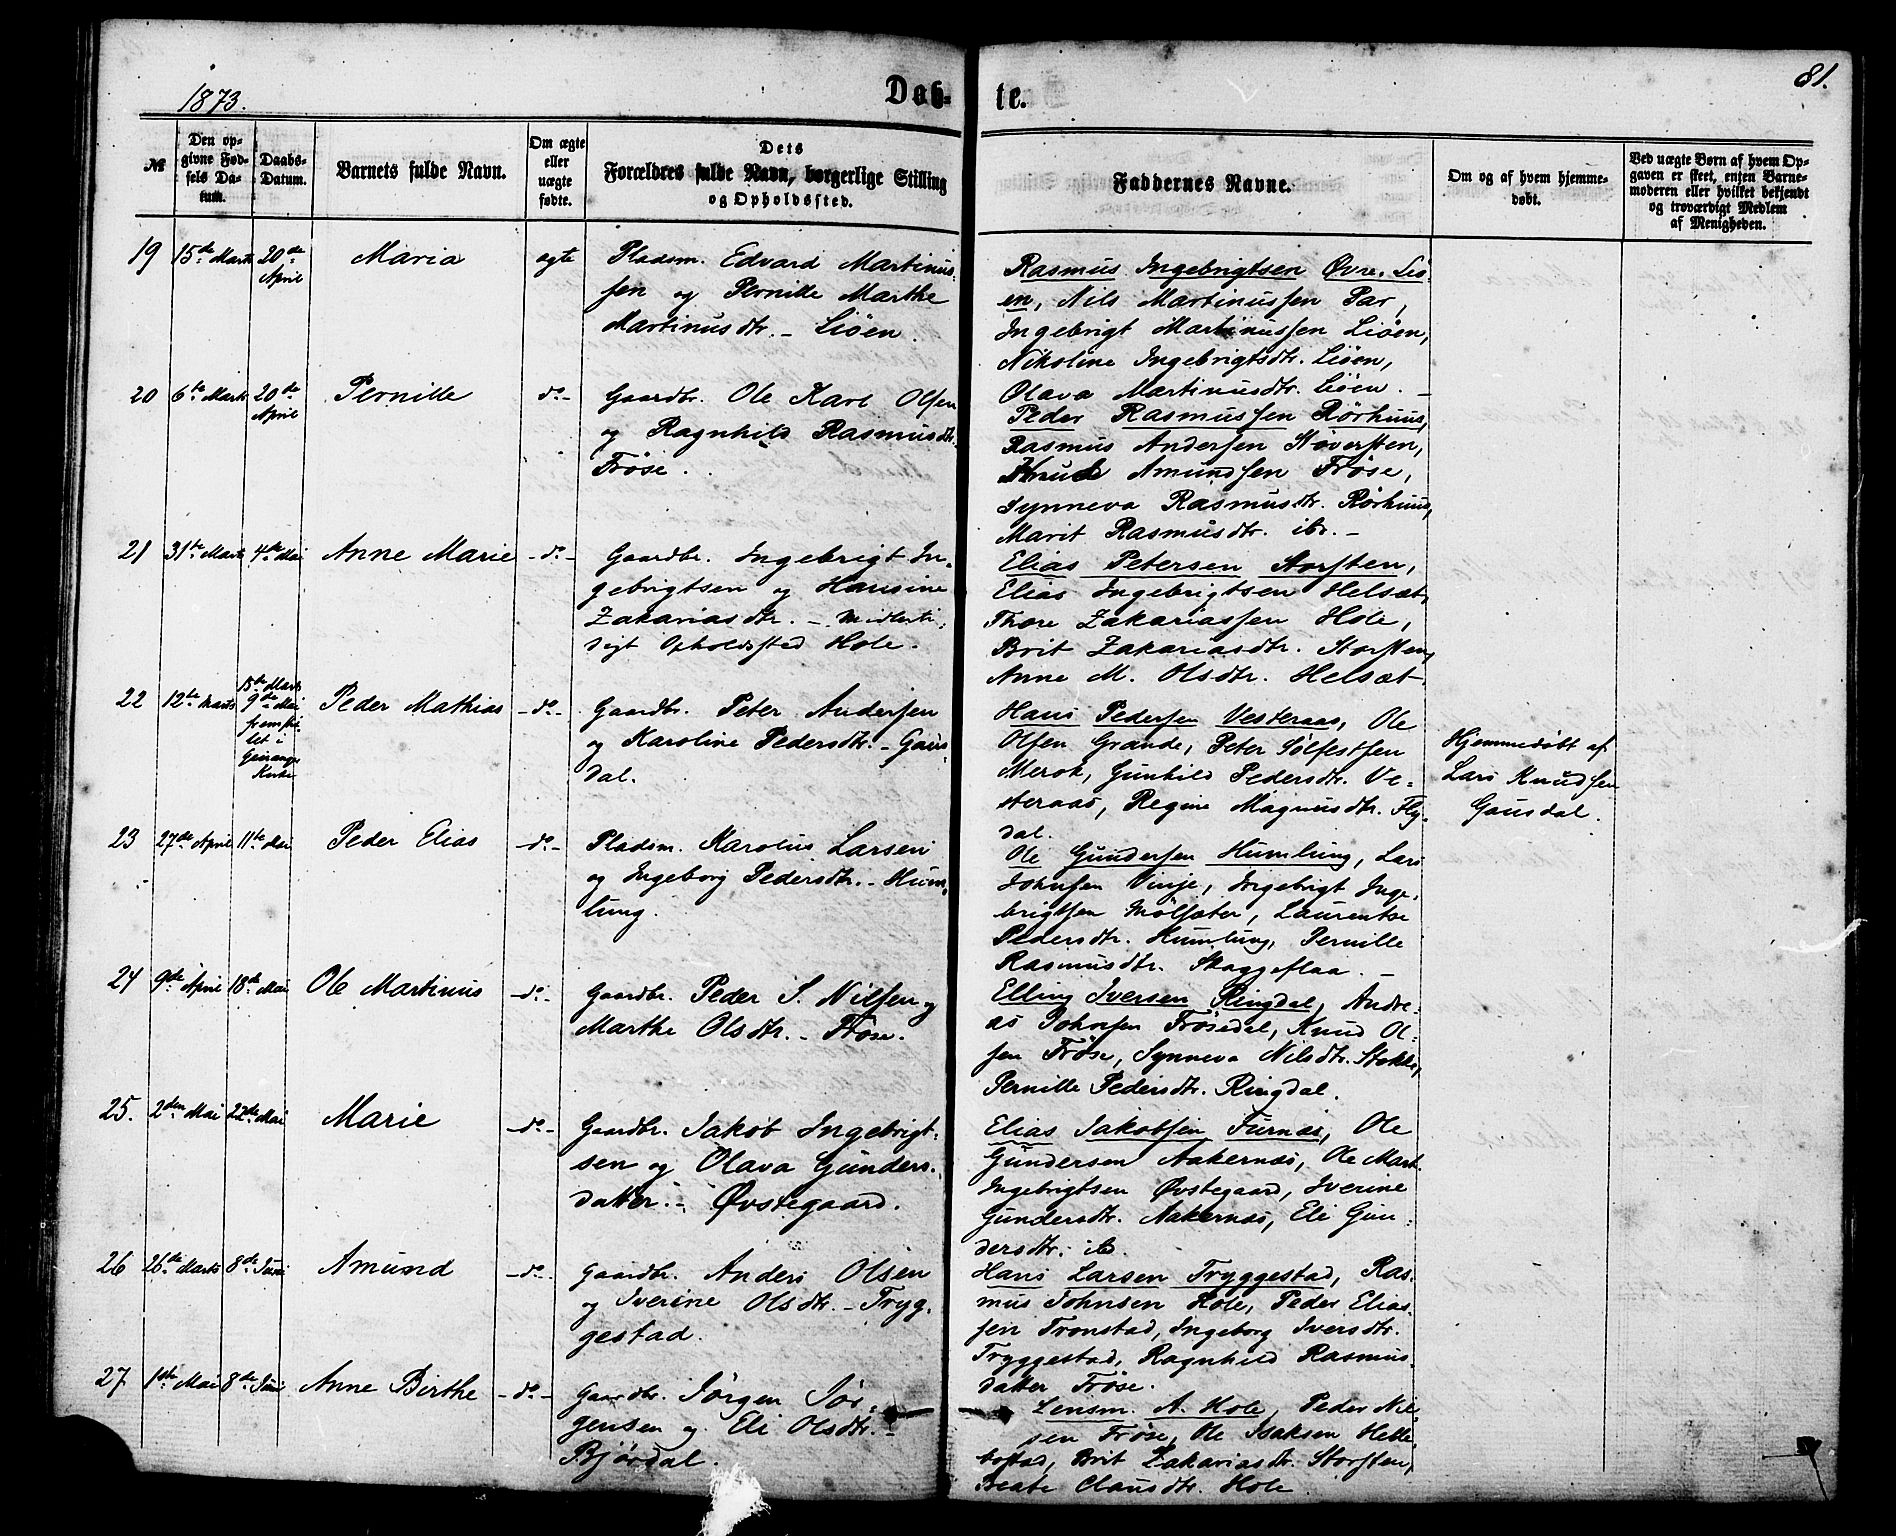 1873.
Døb-
te.
81.
№
Den op-
givne Fød-
sels Da-
tum.
Daabs-
Datum.
Barnets fulde Navn.
Om ægte
eller
uægte
fødte.
Dets
Forældres fulde Navn, borgerlige Stilling
og Opholdssted.
Faddernes Navne.
Om og af hvem hjemme-
døbt.
Ved uægte Børn af hvem Op-
gaven er skeet, enten Barne-
moderen eller hvilket bekjendt
og troværdigt Medlem
af Menigheden.
19 15de Marts 20de April Maria ægte
Pladsm. Edvard Martinus-
sen og Pernille Marthe
Martinusdtr. - Liöen.
Rasmus Ingebrigtsen Øvre-Liö-
en, Nils Martinussen Par,
Ingebrigt Martinussen Liöen,
Nikoline Ingebrigtsdtr. Liöen,
Olava Martinusdtr. Liöen. -
20 6te Marts 20de April Pernille do-
Gaardbr. Ole Karl Olsen
og Ragnhild Rasmusdtr.
Fröse.
Peder Rasmussen Rörhuus,
Rasmus Andersen Støversten,
Knud Amundsen Fröse,
Synneva Rasmusdtr. Rörhuus,
Marit Rasmusdtr. ib. -
21 31te Marts 4de Mai Anne Marie -do-
Gaardbr. Ingebrigt In-
gebrigtsen og Hansine
Zakariasdtr. - Midlerti-
digt Opholdssted Hole.
Elias Petersen Storsten,
Elias Ingebrigtsen Helsæt,
Thore Zakariassen Hole,
Brit Zakariasdtr. Storsten,
Anne M. Olsdtr. Helsæt.
22 12te Marts
15de Marts
9de Mai
fremstil-
let i
Geiranger
Kirke
Peder Mathias -do-
Gaardbr. Peter Andersen
og Karoline Pedersdtr. - Gaus-
dal.
Hans Pedersen Vesteraas, Ole
Olsen Grande, Peter Sölfestsen
Merok, Gunhild Pedersdtr. Ve-
steraas, Regine Magnusdtr. Fly-
dal.
Hjemmedöbt af
Lars Knudsen
Gausdal.
23 27de April 11te Mai Peder Elias -do-
Pladsm. Karolus Larsen
og Ingeborg Pedersdtr. - Hum-
lung.
Ole Gundersen Humlung, Lars
Johnsen Vinje, Ingebrigt Inge-
brigtsen Mölsæter, Laurentse
Pedersdtr. Humlung, Pernille
Rasmusdtr. Skaggeflaa. -
24 9de April 18de Mai Ole Martinus -do-
Gaardbr. Peder S. Nilsen og
Marthe Olsdtr. - Fröse.
Elling Iversen Ringdal, Andre-
as Johnsen Frösedal, Knud Ol-
sen Fröse, Synneva Nilsdtr. Stokke,
Pernille Pedersdtr. Ringdal.
25. 2den Mai 22de Mai Marie -do-
Gaardbr. Jakob Ingebrigt-
sen og Olava Gunders-
datter. - Øvstegaard.
Elias Jakobsen Furnæs, Ole
Gundersen Aakernæs, Ole Mart.
Ingebrigtsen Øvstegaard, Iverine
Gundersdtr. Aakernæs, Eli Gun-
dersdtr. ib.
26 26de Marts 8de Juni Amund -do-
Gaardbr. Anders Olsen
og Iverine Olsdtr. - Tryg-
gestad.
Hans Larsen Tryggestad, Ras-
mus Johnsen Hole, Peder Elias-
sen Tronstad, Ingeborg Iversdtr.
Tryggestad, Ragnhild Rasmus-
datter Fröse.
27 1ste Mai 8de Juni Anne Birthe -do-
Gaardbr. Jörgen Jör-
gensen og Eli Olsdtr. -
Björdal.
Lensm. A. Hole, Peder Nil-
sen Fröse, Ole Isaksen Helle-
bostad, Brit Zakariasdtr. Storsten,
Beate Clausdtr. Hole.